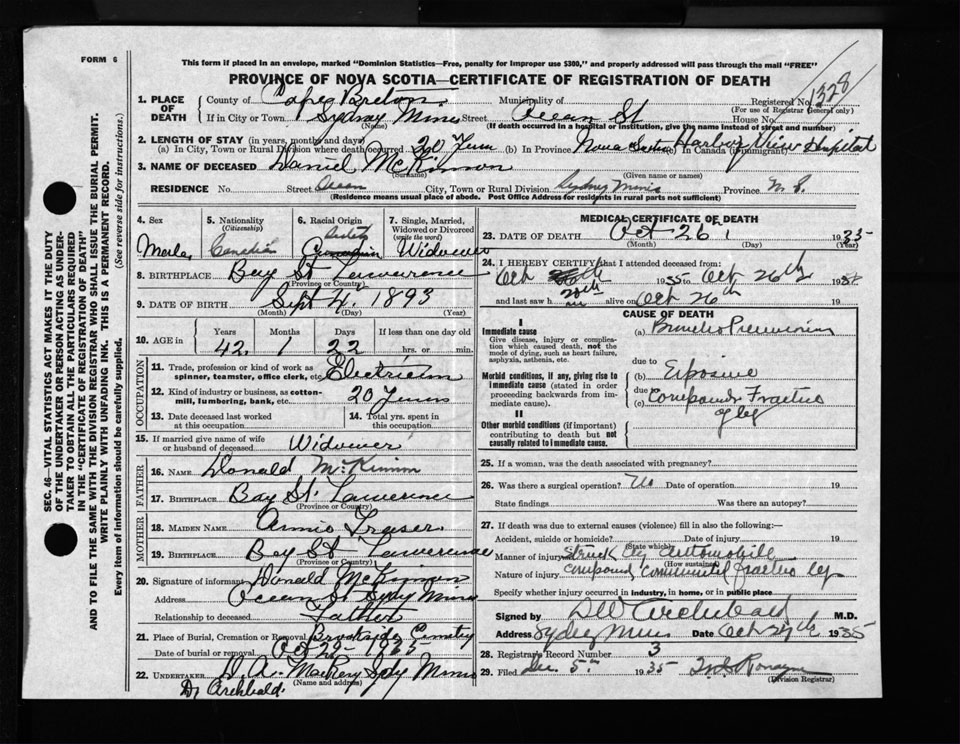 FORM 6
This form if placed in an envelope, marked "Dominion Statistics—Free, penalty for improper use $300," and properly addressed will pass through the mail "FREE"
PROVINCE OF NOVA SCOTIA—CERTIFICATE OF REGISTRATION OF DEATH
1328
1. PLACE OF DEATH
County of Cape Breton Municipality of Registered No.
(For use of Registrar General only)
If in City or Town Sydney Mines Street Ocean St House No.
(Name) (If death occurred in a hospital or institution, give the name instead of street and number)
2. LENGTH OF STAY (in years, months and days) Harbor View Hospital
(a) In City, Town or Rural Division where death occurred 20 Years (b) In Province Nova Scotia (c) In Canada (if immigrant)
3. NAME OF DECEASED Daniel McKinnon
(Surname) (Given name or names)
RESIDENCE No. Street Ocean City, Town or Rural Division Sydney Mines Province N.S.
(Residence means usual place of abode. Post Office Address for residents in rural parts not sufficient)
4. Sex
Male
5. Nationality (Citizenship)
6. Racial Origin
7. Single, Married, Widowed or Divorced (write the word)
Widower
8. BIRTHPLACE Bay St Lawerence
(Province or Country)
9. DATE OF BIRTH Sept 4, 1893
(Month) (Day) (Year)
10. AGE in Years Months Days If less than one day old
42 1 22 hrs. or min.
OCCUPATION
11. Trade, profession or kind of work as spinner, teamster, office clerk, etc. Electrician
12. Kind of industry or business, as cotton-mill, lumbering, bank, etc. 20 Years
13. Date deceased last worked at this occupation
14. Total yrs. spent in this occupation
15. If married give name of wife or husband of deceased Widower
FATHER
16. NAME Donald McKinnon
17. BIRTHPLACE Bay St. Lawerence
(Province or Country)
MOTHER
18. MAIDEN NAME Annie Fraser
19. BIRTHPLACE Bay St Lawerence
(Province or Country)
20. Signature of informant Donald McKinnon
Address Ocean St Sydy Mines
Relationship to deceased Father
21. Place of Burial, Cremation or Removal Brookside Cemetry
Date of burial or removal Oct 29 1935
22. UNDERTAKER Sydy Mines
(Name and Address)
Dr Archbald.
MEDICAL CERTIFICATE OF DEATH
23. DATE OF DEATH Oct 26th 1935
(Month) (Day) (Year)
24. I HEREBY CERTIFY that I attended deceased from:
Oct 1935 to Oct 26th 193
20th
and last saw h alive on Oct 26th
CAUSE OF DEATH
I
Immediate cause
Give disease, injury or complication which caused death, not the mode of dying, such as heart failure, asphyxia, asthenia, etc.
(a) Broncho Pneumonia
due to
Morbid conditions, if any, giving rise to immediate cause (stated in order proceeding backwards from immediate cause).
(b) Exposure
due to
(c) Compound Fractus
of leg
II
Other morbid conditions (if important) contributing to death but not causally related to immediate cause.
25. If a woman, was the death associated with pregnancy?
26. Was there a surgical operation? No Date of operation 19
State findings Was there an autopsy?
27. If death was due to external causes (violence) fill in also the following:—
Accident, suicide or homicide? Date of injury 19
(State which)
Manner of injury Struck by automobile
(How sustained)
Nature of injury Compound comminuted fractus leg
Specify whether injury occurred in industry, in home, or in public place
Signed by D W Archibald M.D.
Address Sydney Mines Date Oct 29th 1935
28. Registrar's Record Number 3
29. Filed Dec 5th 1935
(Division Registrar)
SEC. 46—VITAL STATISTICS ACT MAKES IT THE DUTY
OF THE UNDERTAKER OR PERSON ACTING AS UNDER-
TAKER TO OBTAIN ALL THE PARTICULARS REQUIRED
IN THE "CERTIFICATE OF REGISTRATION OF DEATH"
AND TO FILE THE SAME WITH THE DIVISION REGISTRAR WHO SHALL ISSUE THE BURIAL PERMIT.
WRITE PLAINLY WITH UNFADING INK. THIS IS A PERMANENT RECORD.
Every item of information should be carefully supplied. (See reverse side for instructions.)